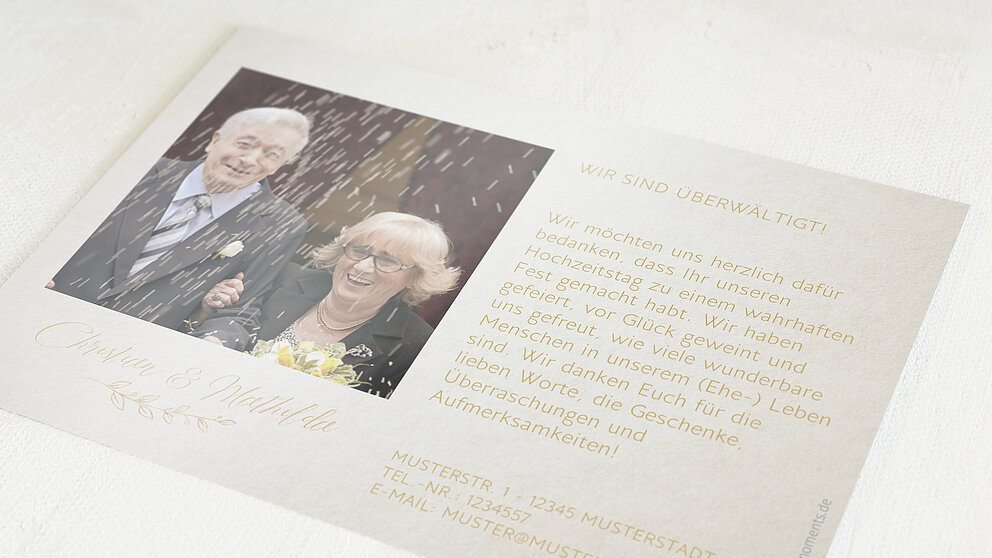 WIR SIND ÜBERWÄLTIGT!
Wir möchten uns herzlich dafür
bedanken, dass Ihr unseren
Hochzeitstag zu einem wahrhaften
Fest gemacht habt. Wir haben
gefeiert, vor Glück geweint und
uns gefreut, wie viele wunderbare
Menschen in unserem (Ehe-) Leben
sind. Wir danken Euch für die
lieben Worte, die Geschenke,
Überraschungen und
Aufmerksamkeiten!
Christian & Mathilda
MUSTERSTR. 1 - 12345 MUSTERSTADT
TEL.-NR.: 1234557
E-MAIL: MUSTER@MUSTE
moments.de